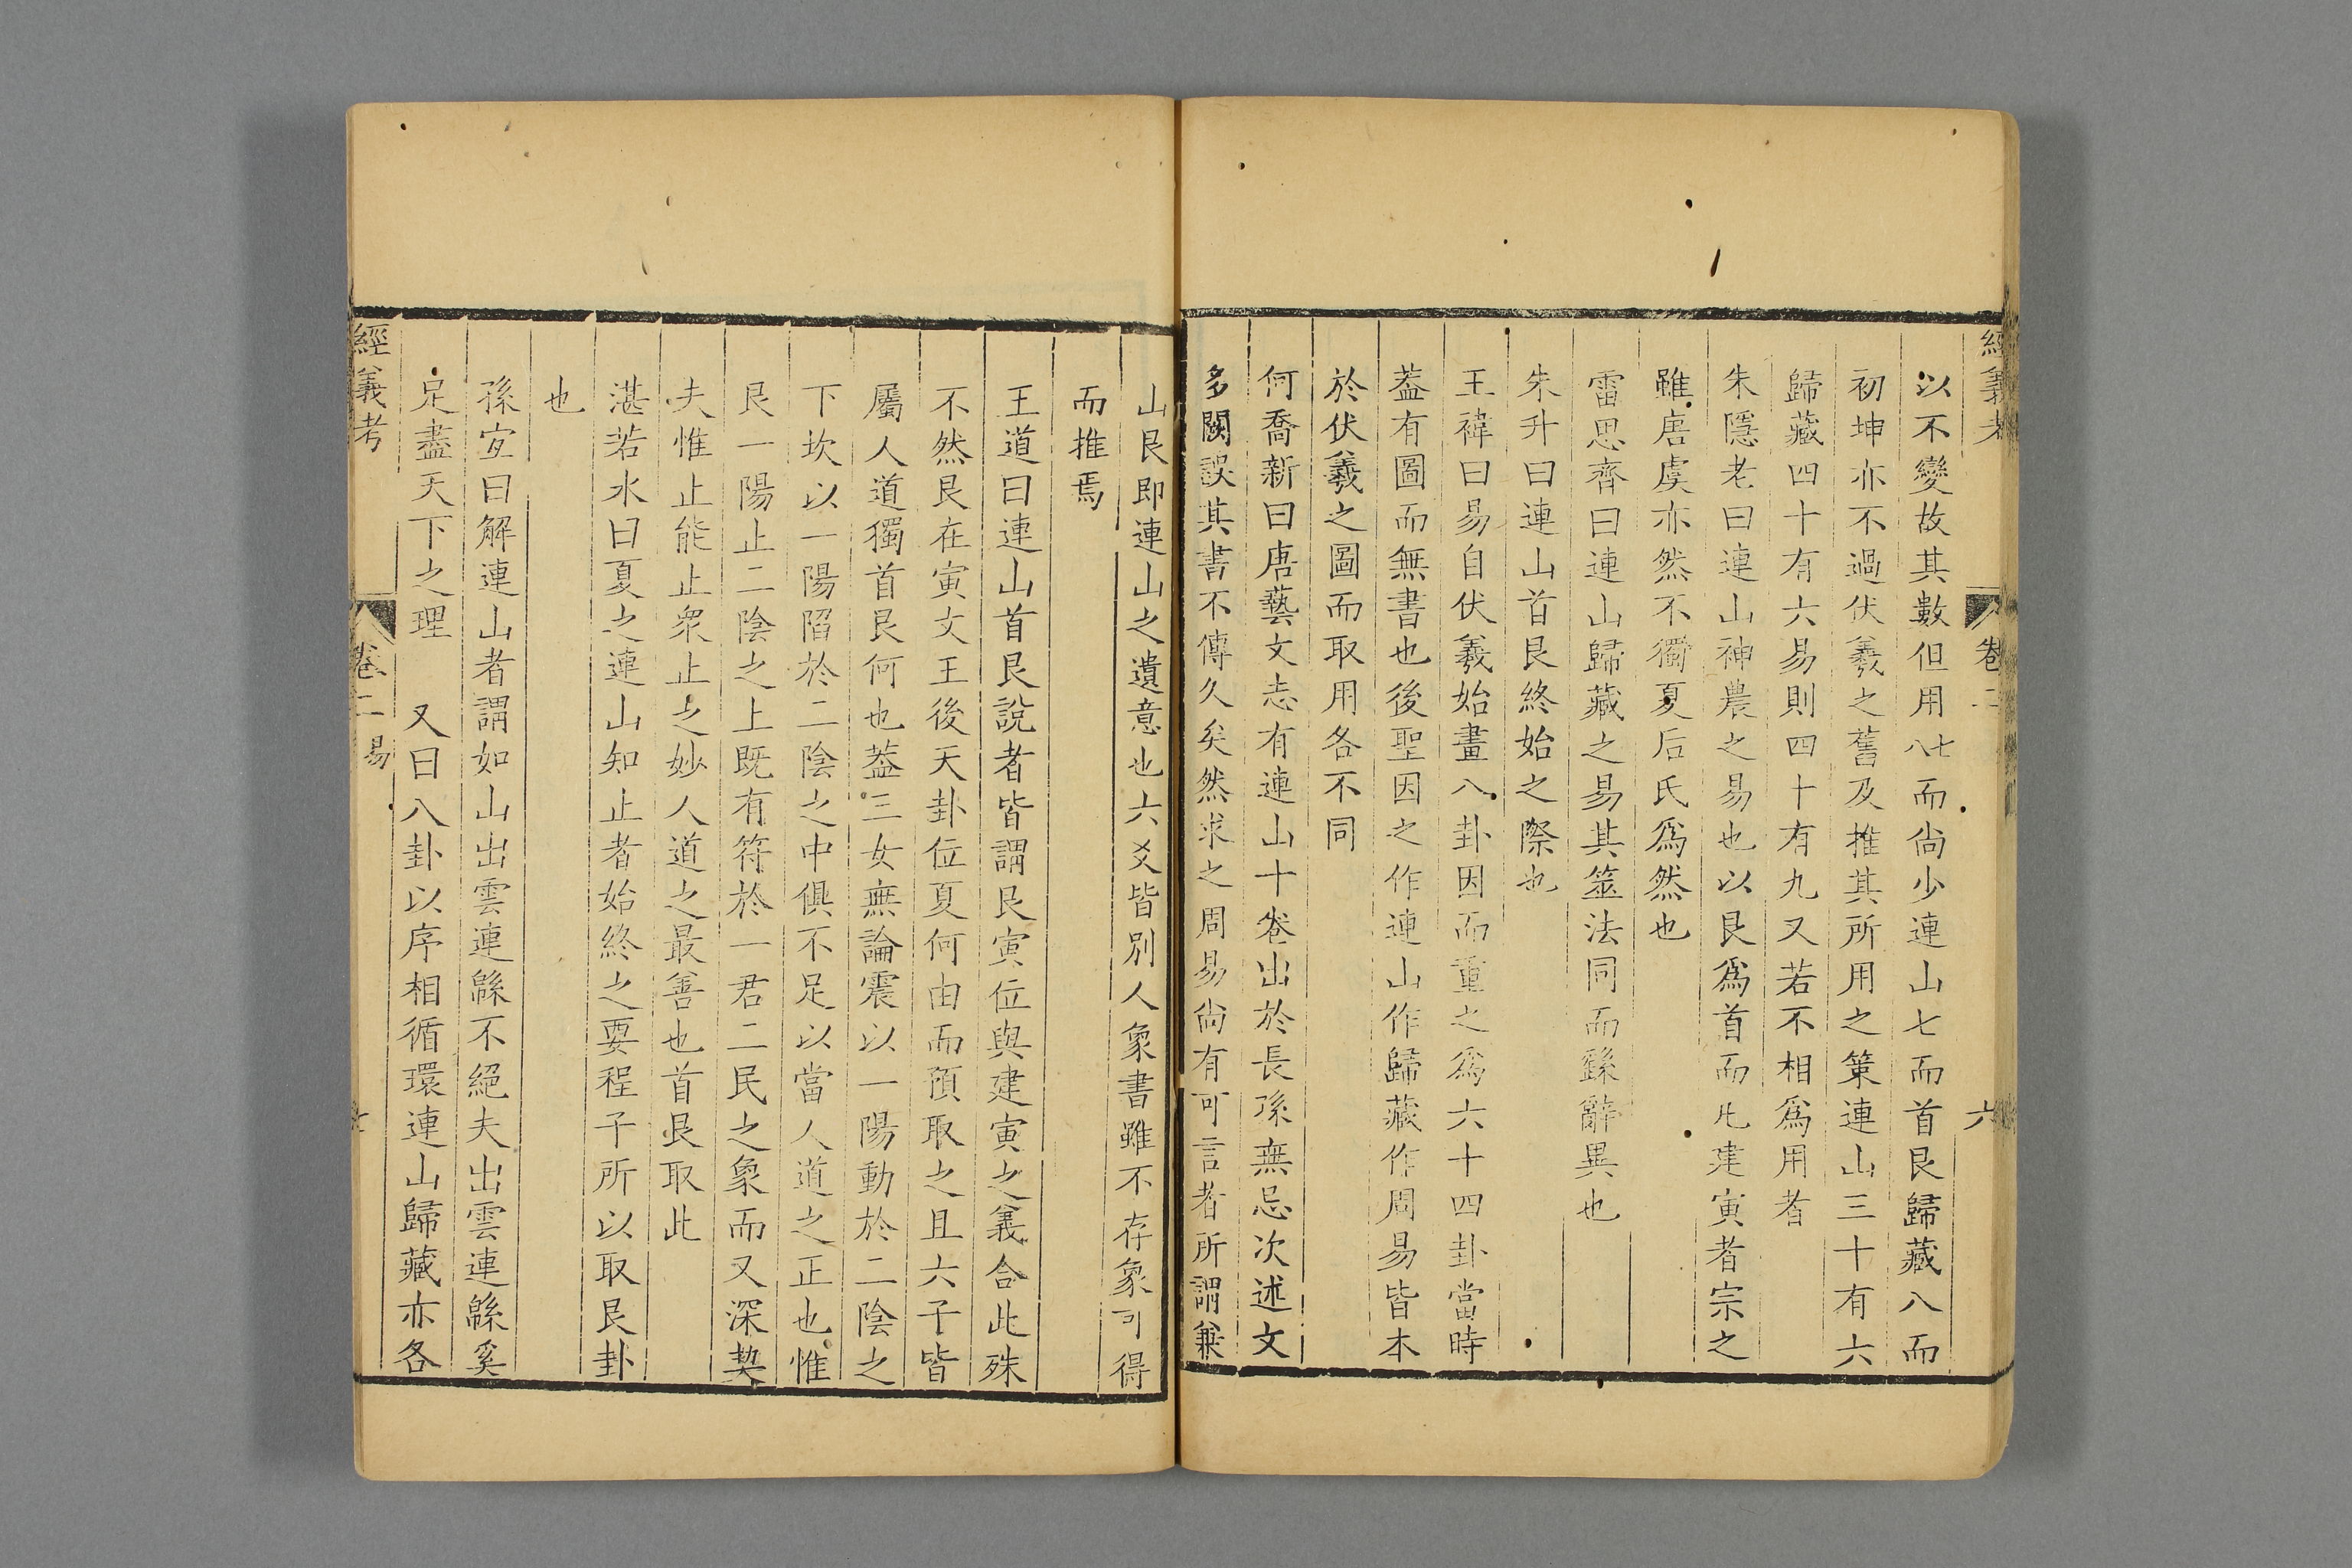 經義考
卷二
六
以不變故其數但用七八而尙少連山七而首艮歸藏八而
初坤亦不過伏羲之舊及推其所用之策連山三十有六
歸藏四十有六易則四十有九又若不相爲用者
朱隱老曰連山神農之易也以艮爲首而凡建寅者宗之
雖唐虞亦然不獨夏后氏爲然也
雷思齊曰連山歸藏之易其筮法同而繇辭異也
朱升曰連山首艮終始之際也
王禕曰易自伏羲始畫八卦因而重之爲六十四卦當時
葢有圖而無書也後聖因之作連山作歸藏作周易皆本
於伏羲之圖而取用各不同
何喬新曰唐藝文志有連山十卷出於長孫無忌次述文
多闕誤其書不傳久矣然求之周易尙有可言者所謂兼
山艮即連山之遺意也六爻皆別人象書雖不存象可得
而推焉
王道曰連山首艮說者皆謂艮寅位與建寅之義合此殊
不然艮在寅文王後天卦位夏何由而預取之且六子皆
屬人道獨首艮何也葢三女無論震以一陽動於二陰之
下坎以一陽陷於二陰之中俱不足以當人道之正也惟
艮一陽止二陰之上既有符於一君二民之象而又深契
夫惟止能止衆止之妙人道之最善也首艮取此
湛若水曰夏之連山知止者始終之要程子所以取艮卦
也
孫宜曰解連山者謂如山出雲連緜不絕夫出雲連緜奚
足盡天下之理　又曰八卦以序相循環連山歸藏亦各
經義考
卷二 易
七